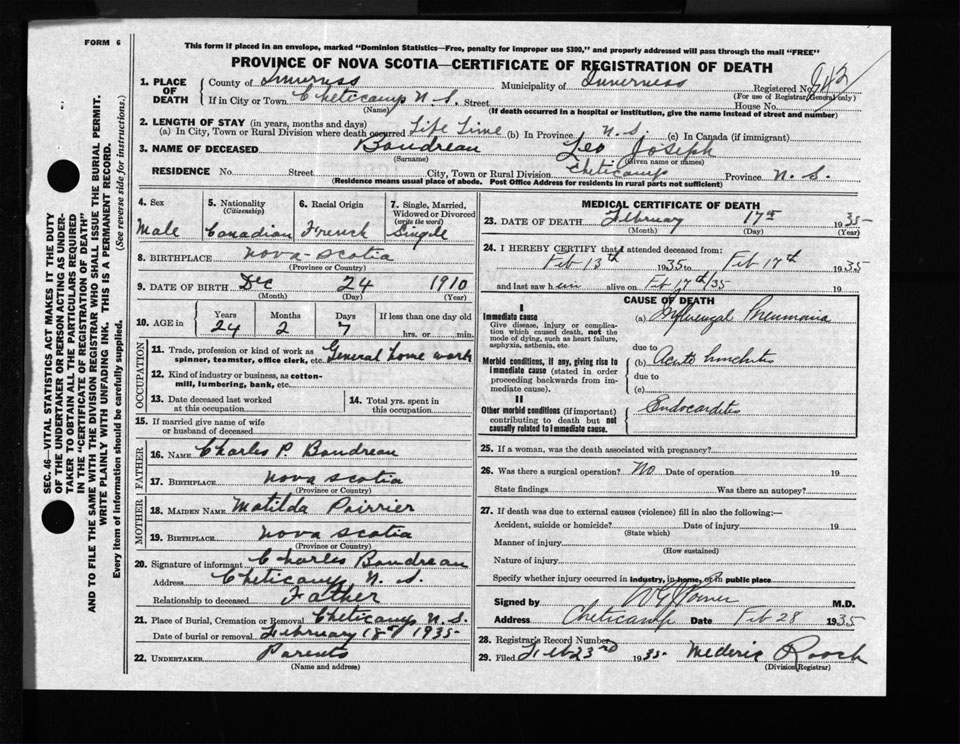 FORM 6
This form if placed in an envelope, marked "Dominion Statistics—Free, penalty for improper use $300," and properly addressed will pass through the mail "FREE"
PROVINCE OF NOVA SCOTIA—CERTIFICATE OF REGISTRATION OF DEATH
1. PLACE OF DEATH County of Inverness Municipality of Inverness Registered No.
(For use of Registrar General only)
If in City or Town Cheticamp N.S. Street House No.
(Name) (If death occurred in a hospital or institution, give the name instead of street and number)
2. LENGTH OF STAY (in years, months and days)
(a) In City, Town or Rural Division where death occurred Life Time (b) In Province N.S. (c) In Canada (if immigrant)
3. NAME OF DECEASED Boudreau Leo Joseph
(Surname) (Given name or names)
RESIDENCE No. Street City, Town or Rural Division Cheticamp Province N.S.
(Residence means usual place of abode. Post Office Address for residents in rural parts not sufficient)
SEC. 46—VITAL STATISTICS ACT MAKES IT THE DUTY
OF THE UNDERTAKER OR PERSON ACTING AS UNDER-
TAKER TO OBTAIN ALL THE PARTICULARS REQUIRED
IN THE "CERTIFICATE OF REGISTRATION OF DEATH"
AND TO FILE THE SAME WITH THE DIVISION REGISTRAR WHO SHALL ISSUE THE BURIAL PERMIT.
WRITE PLAINLY WITH UNFADING INK. THIS IS A PERMANENT RECORD.
Every item of information should be carefully supplied. (See reverse side for instructions.)
4. Sex 5. Nationality (Citizenship) 6. Racial Origin 7. Single, Married, Widowed or Divorced (write the word)
Male Canadian French Single
8. BIRTHPLACE Nova-Scotia
(Province or Country)
9. DATE OF BIRTH Dec 24 1910
(Month) (Day) (Year)
10. AGE in Years Months Days If less than one day old
24 2 7 hrs. or min.
OCCUPATION
11. Trade, profession or kind of work as spinner, teamster, office clerk, etc. General home work
12. Kind of industry or business, as cotton-mill, lumbering, bank, etc.
13. Date deceased last worked at this occupation 14. Total yrs. spent in this occupation
15. If married give name of wife or husband of deceased
FATHER
16. NAME Charles P. Boudreau
17. BIRTHPLACE Nova Scotia
(Province or Country)
MOTHER
18. MAIDEN NAME Matilda Poirrier
19. BIRTHPLACE Nova Scotia
(Province or Country)
20. Signature of informant Charles Boudreau
Address Cheticamp N.S.
Relationship to deceased Father
21. Place of Burial, Cremation or Removal Cheticamp N.S.
Date of burial or removal February 18th 1935
22. UNDERTAKER Parents
(Name and address)
MEDICAL CERTIFICATE OF DEATH
23. DATE OF DEATH February 17th 1935
(Month) (Day) (Year)
24. I HEREBY CERTIFY that I attended deceased from:
Feb 13th 1935 to Feb 17th 1935
and last saw him alive on Feb 17th/35 19
CAUSE OF DEATH
I
Immediate cause (a) Influenzal Pneumonia
Give disease, injury or complication which caused death, not the mode of dying, such as heart failure, asphyxia, asthenia, etc.
due to
Morbid conditions, if any, giving rise to immediate cause (stated in order proceeding backwards from immediate cause). (b) Acute
due to
(c)
II
Other morbid conditions (if important) contributing to death but not causally related to immediate cause. Endocarditis
25. If a woman, was the death associated with pregnancy?
26. Was there a surgical operation? No Date of operation 19
State findings Was there an autopsy?
27. If death was due to external causes (violence) fill in also the following:—
Accident, suicide or homicide? Date of injury 19
(State which)
Manner of injury
(How sustained)
Nature of injury
Specify whether injury occurred in industry, in home, or in public place
Signed by M.D.
Address Cheticamp Date Feb 28 1935
28. Registrar's Record Number
29. Filed Feb 23rd 1935 Mederic Roach
(Division Registrar)